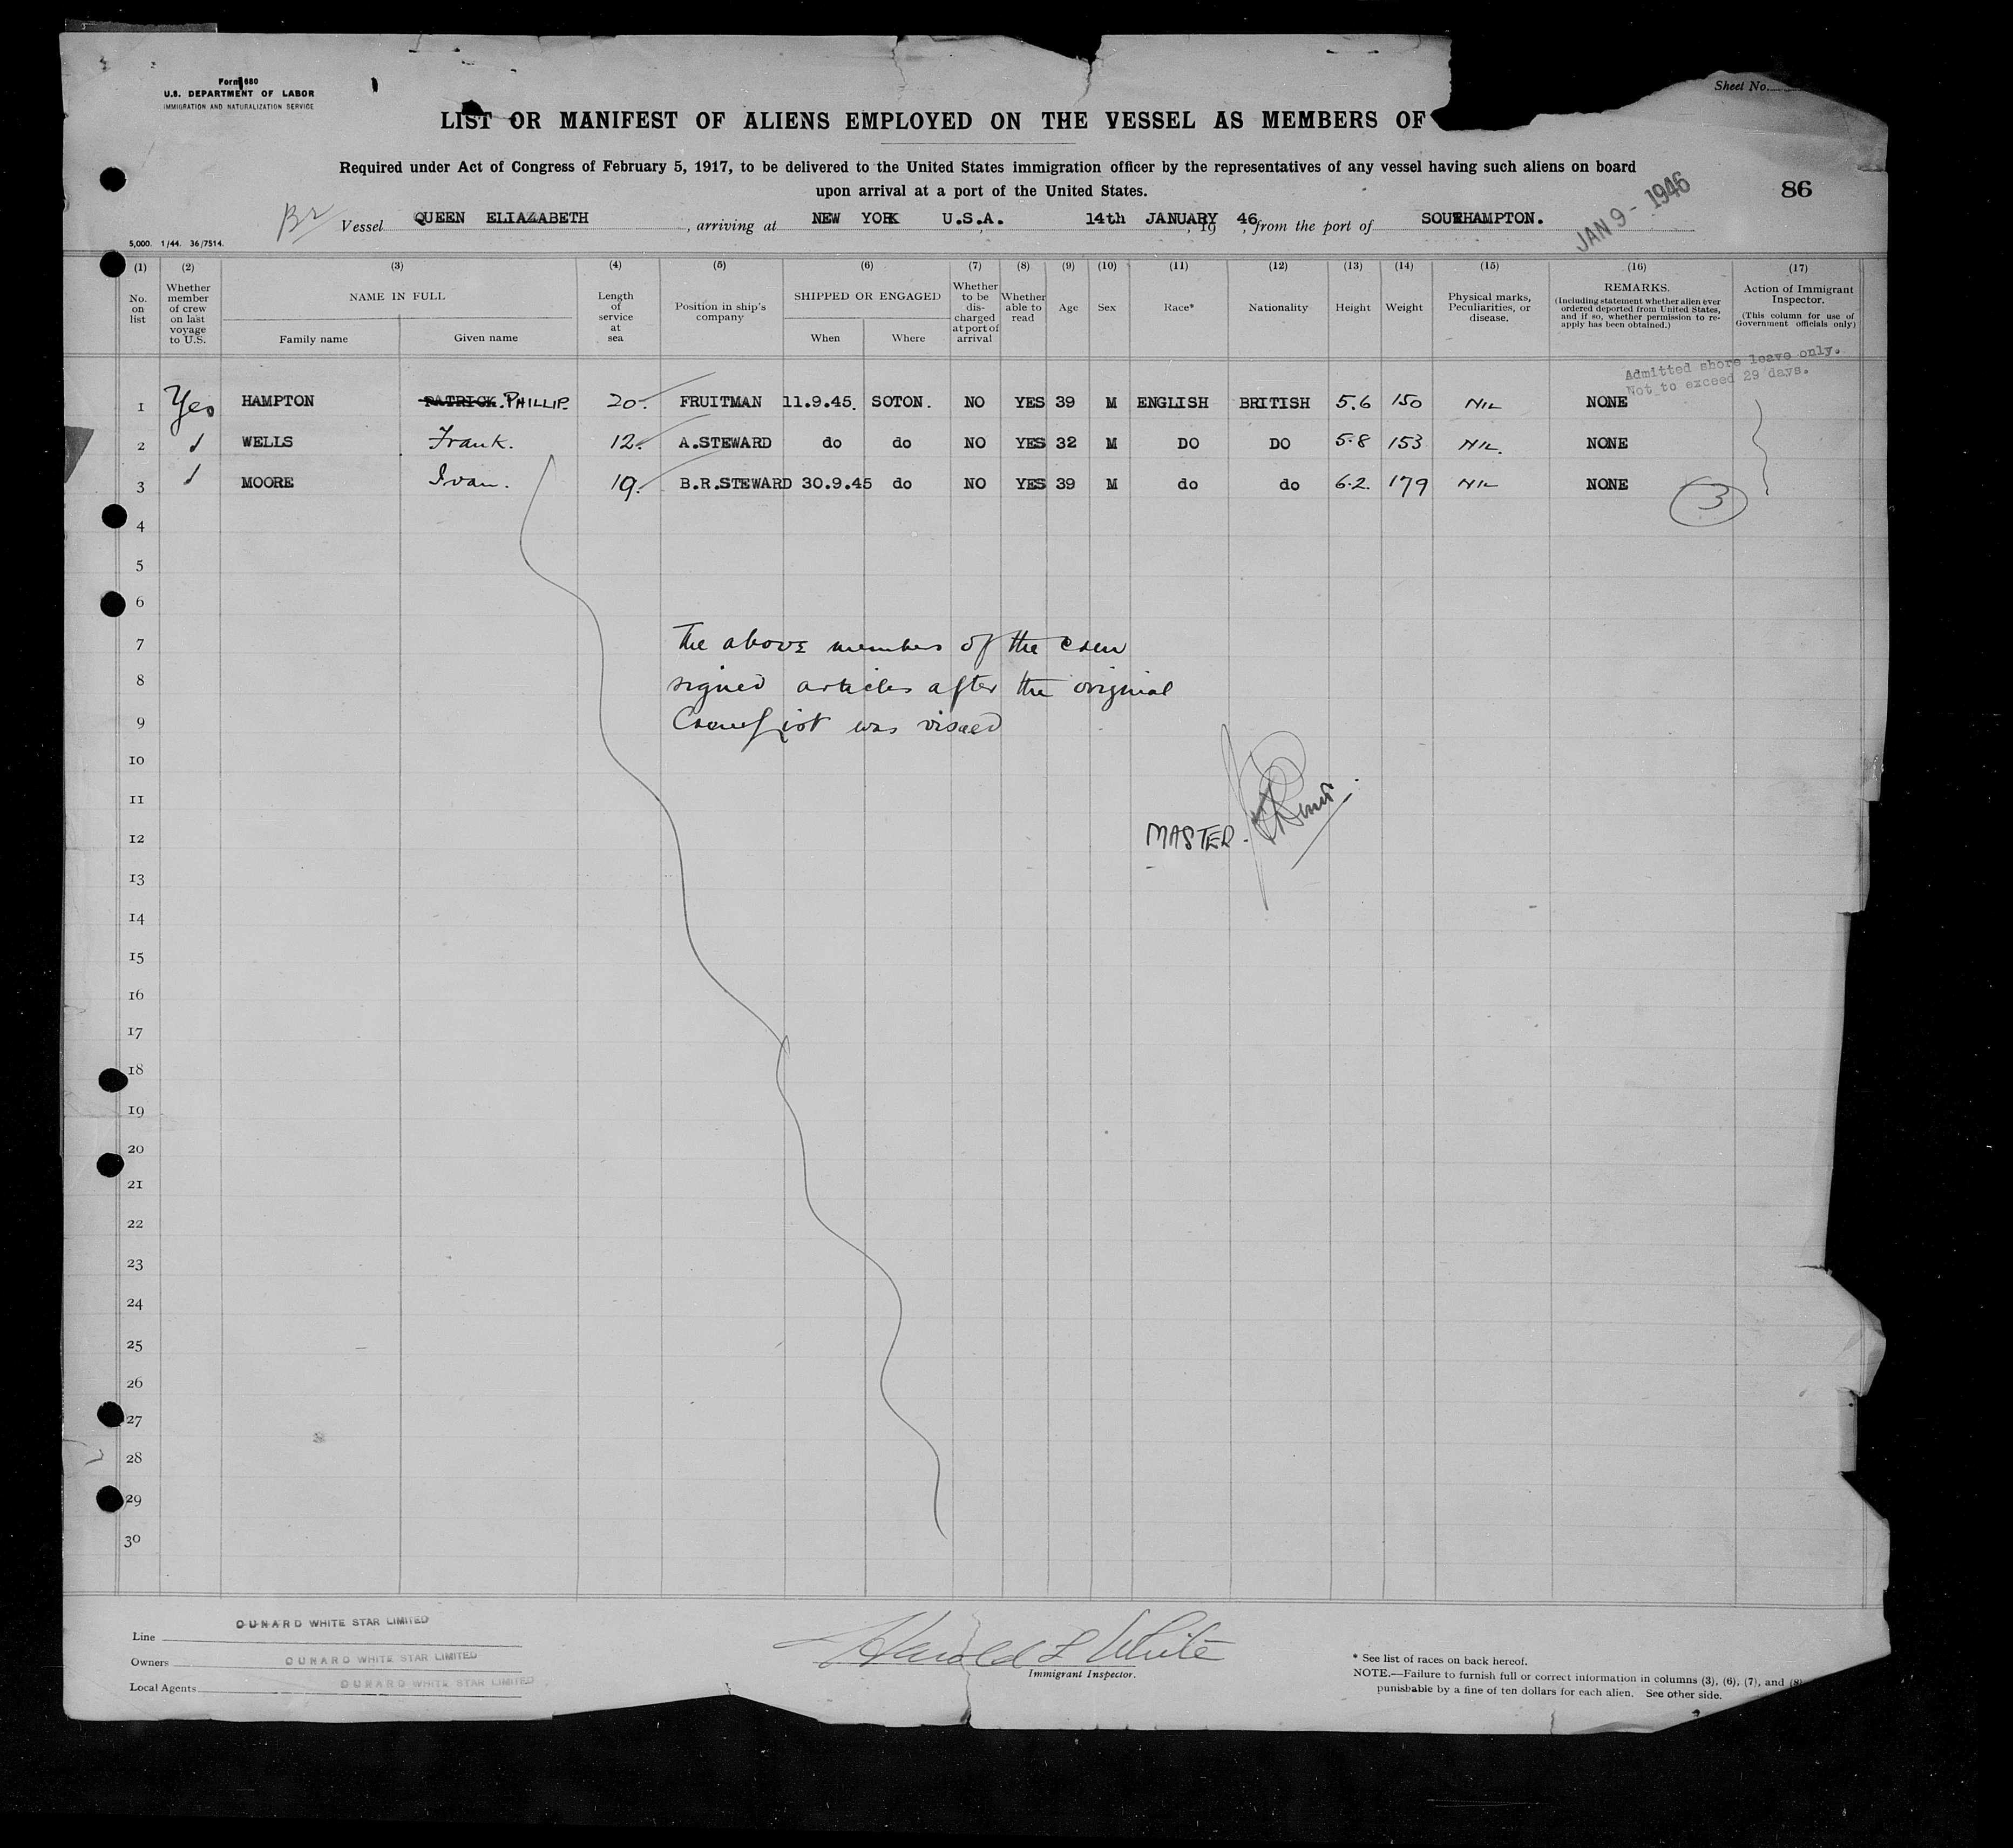 Form 680
U.S. DEPARTMENT OF LABOR
IMMIGRATION AND NATURALIZATION SERVICE
Sheet No.
LIST OR MANIFEST OF ALIENS EMPLOYED ON THE VESSEL AS MEMBERS OF
Required under Act of Congress of February 5, 1917, to be delivered to the United States immigration officer by the representatives of any vessel having such aliens on board
upon arrival at a port of the United States.
86
JAN 9 - 1946
Vessel QUEEN ELIAZABETH, arriving at NEW YORK U.S.A. 14th JANUARY, 19 46, from the port of SOUTHAMPTON.
5,000. 1/44. 36/7514.
(1) (2) (3) (4) (5) (6) (7) (8) (9) (10) (11) (12) (13) (14) (15) (16) (17)
No. on list
Whether member of crew on last voyage to U.S.
NAME IN FULL
Family name
Given name
Length of service at sea
Position in ship's company
SHIPPED OR ENGAGED
When
Where
Whether to be discharged at port of arrival
Whether able to read
Age
Sex
Race*
Nationality
Height
Weight
Physical marks, Peculiarities, or disease.
REMARKS.
(Including statement whether alien ever ordered deported from United States, and if so, whether permission to re-apply has been obtained.)
Action of Immigrant Inspector.
(This column for use of Government officials only)
Admitted shore leave only.
Not to exceed 29 days.
1 Yes HAMPTON PATRICK. PHILLIP. 20. FRUITMAN 11.9.45. SOTON. NO YES 39 M ENGLISH BRITISH 5.6 150 NIL NONE
2 WELLS Frank. 12. A.STEWARD do do NO YES 32 M DO DO 5.8 153 NIL. NONE
3 MOORE Ivan. 19. B.R.STEWARD 30.9.45 do NO YES 39 M do do 6.2. 179 NIL NONE
3
4
5
6
7
8
9
10
11
12
13
14
15
16
17
18
19
20
21
22
23
24
25
26
27
28
29
30
The above members of the crew
signed articles after the original
Crew List was visaed
MASTER.
Line CUNARD WHITE STAR LIMITED
Owners CUNARD WHITE STAR LIMITED
Local Agents CUNARD WHITE STAR LIMITED
Harold L White
Immigrant Inspector.
* See list of races on back hereof.
NOTE.—Failure to furnish full or correct information in columns (3), (6), (7), and (8)
punishable by a fine of ten dollars for each alien. See other side.